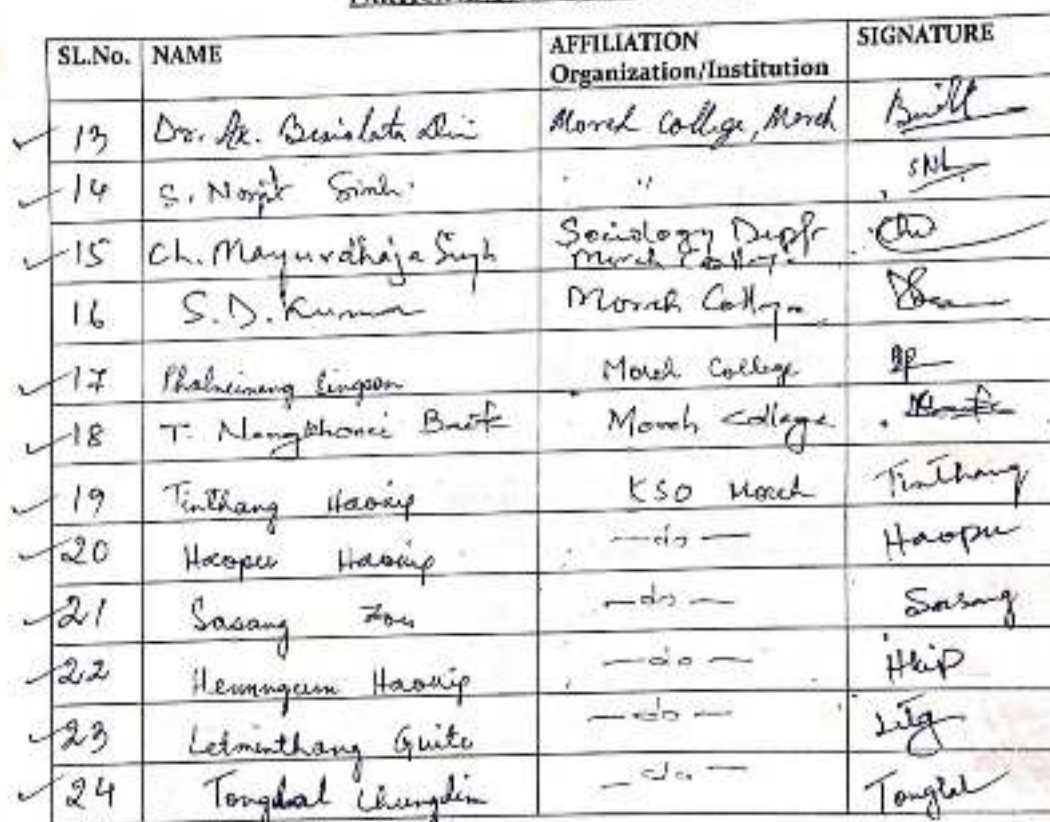 SL.No. NAME AFFILIATION Organization/Institution SIGNATURE
13 Dr. Ak. Moreh College, Moreh
14 S. Norjit Singh " "
15 Ch. Mayurdhaja Singh Sociology Deptt Moreh College
16 S.D. Kumar Moreh College
17 Phalneineng Singson Moreh College
18 T. Moreh College
19 Tinthang Haokip KSO Moreh Tinthang
20 Haopu Haokip —do— Haopu
21 Sasang Zou —do— Sasang
22 Haokip —do— Hkip
23 Letminthang Guite —do— Ltg
24 —do—